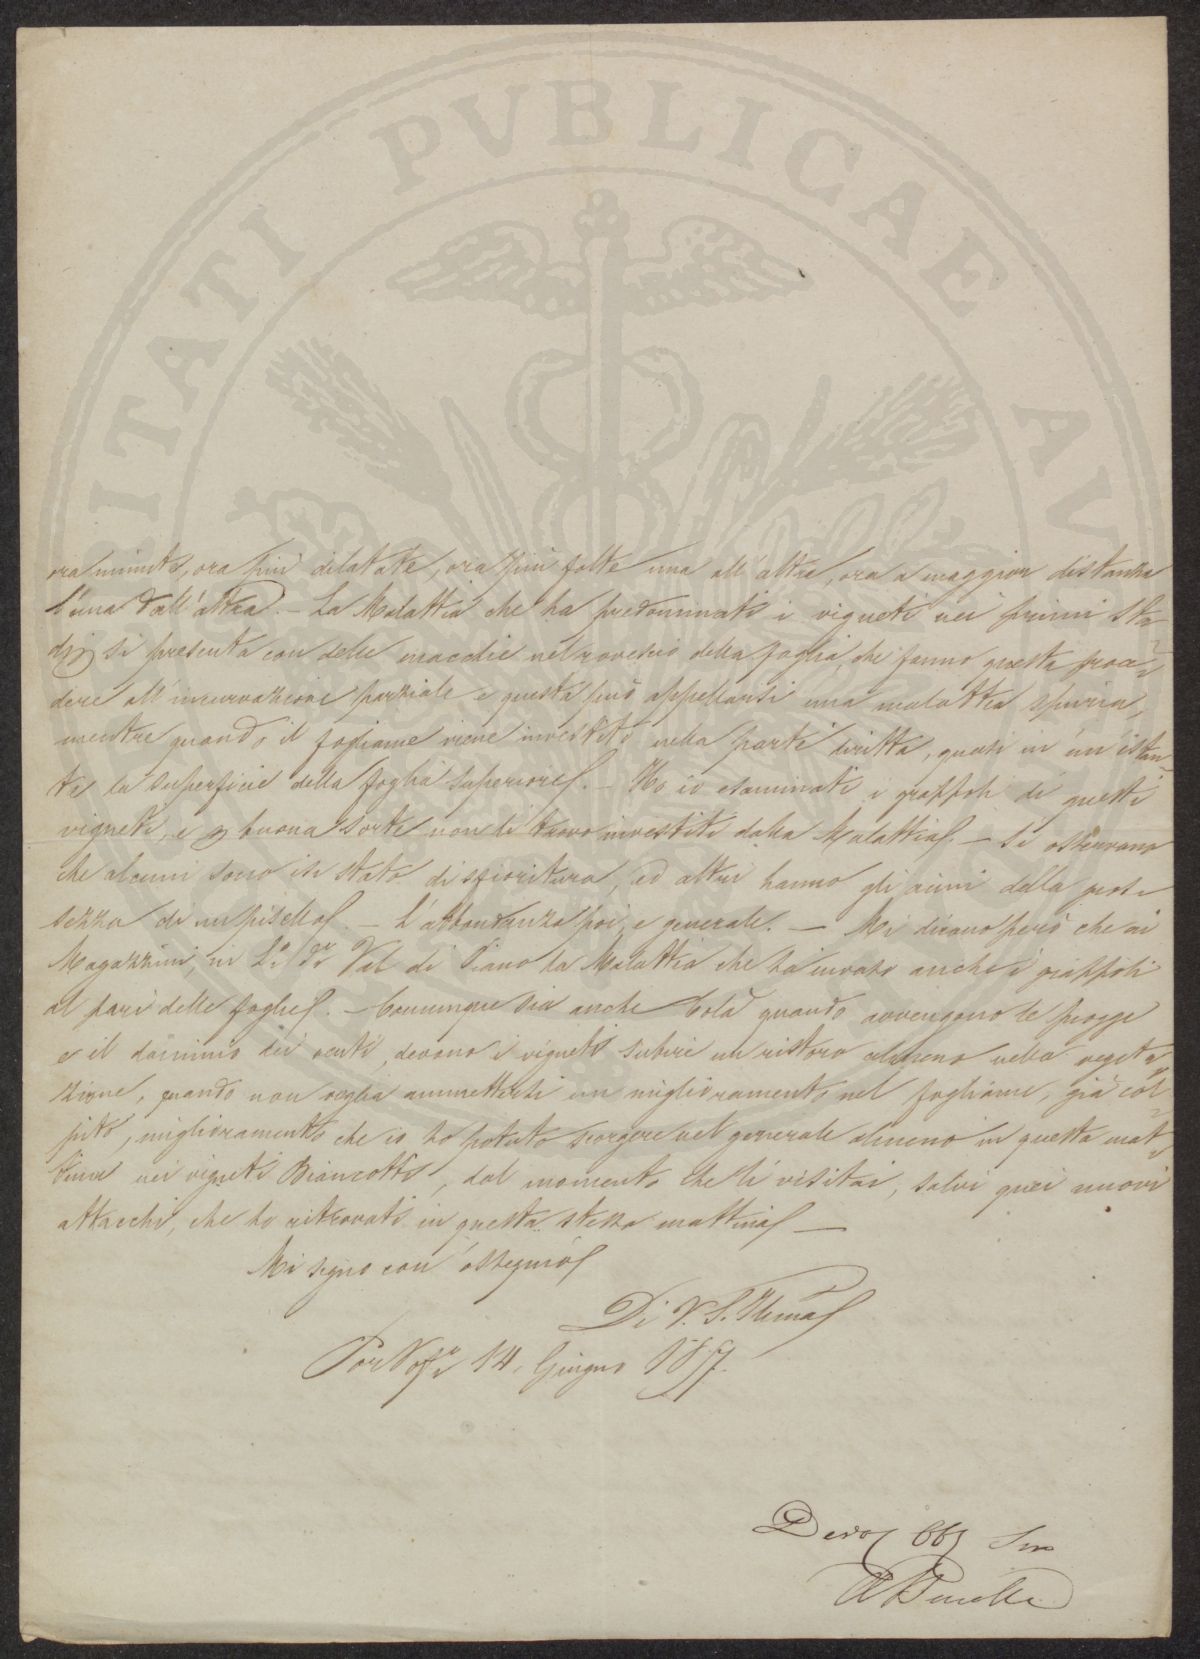 ITATI PVBLICAE AV
ora minute, ora più dilatate, ora più folte una all'altra, ora a maggior distanza
l'una dall'altra. - La Malattia che ha predominato i vigneti nei primi sta-
dj si presenta con delle macchie nel rovescio della foglia, che fanno questa proce-
dere all'incurvazione parziale e questa può appellarsi una malattia spuria,
mentre quando il fogliame viene investito nella parte diritta, quasi in un istan-
te la superficie della foglia superiore. - Ho io esaminati i grappoli di questi
vigneti, e p buona sorte non li trovo investiti dalla Malattia. - Si osservano
che alcuni sono in stato di sfioritura, ed altri hanno gli acini della gros-
sezza di un pisello. - L'abbondanza poi, e generale. - Mi dicono però che ai
Magazzini, in Val di Piano la Malattia che ha invaso anche i grappoli
al pari delle foglie. - Comunque sia anche colà quando avvengono le piogge
e il dominio dei venti, devono i vigneti subire un ristoro almeno nella vegeta-
zione, quando non voglia ammettersi un miglioramento nel fogliame, già col-
pito, miglioramento che io ho potuto scorgere nel generale almeno in questa mat-
tina nei vigneti Biancotti, dal momento che li visitai, salvi quei nuovi
attacchi, che ho ritrovati in questa stessa mattina -
Mi segno con ossequio
Di V. S. Illma
14. Giugno
Devo Obb Ser